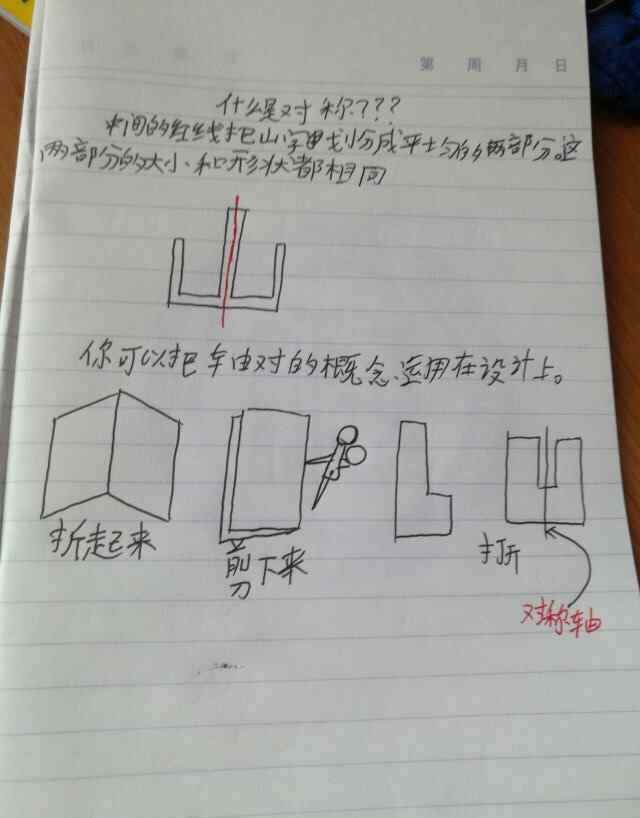 第 周 月 日
什么是对称???
中间的红线把山字平划分成平士匀的两部分。这
两部分的大小和形状都相同
你可以把车由对的概念运用在设计上。
折起来
剪下来
打折
对称轴